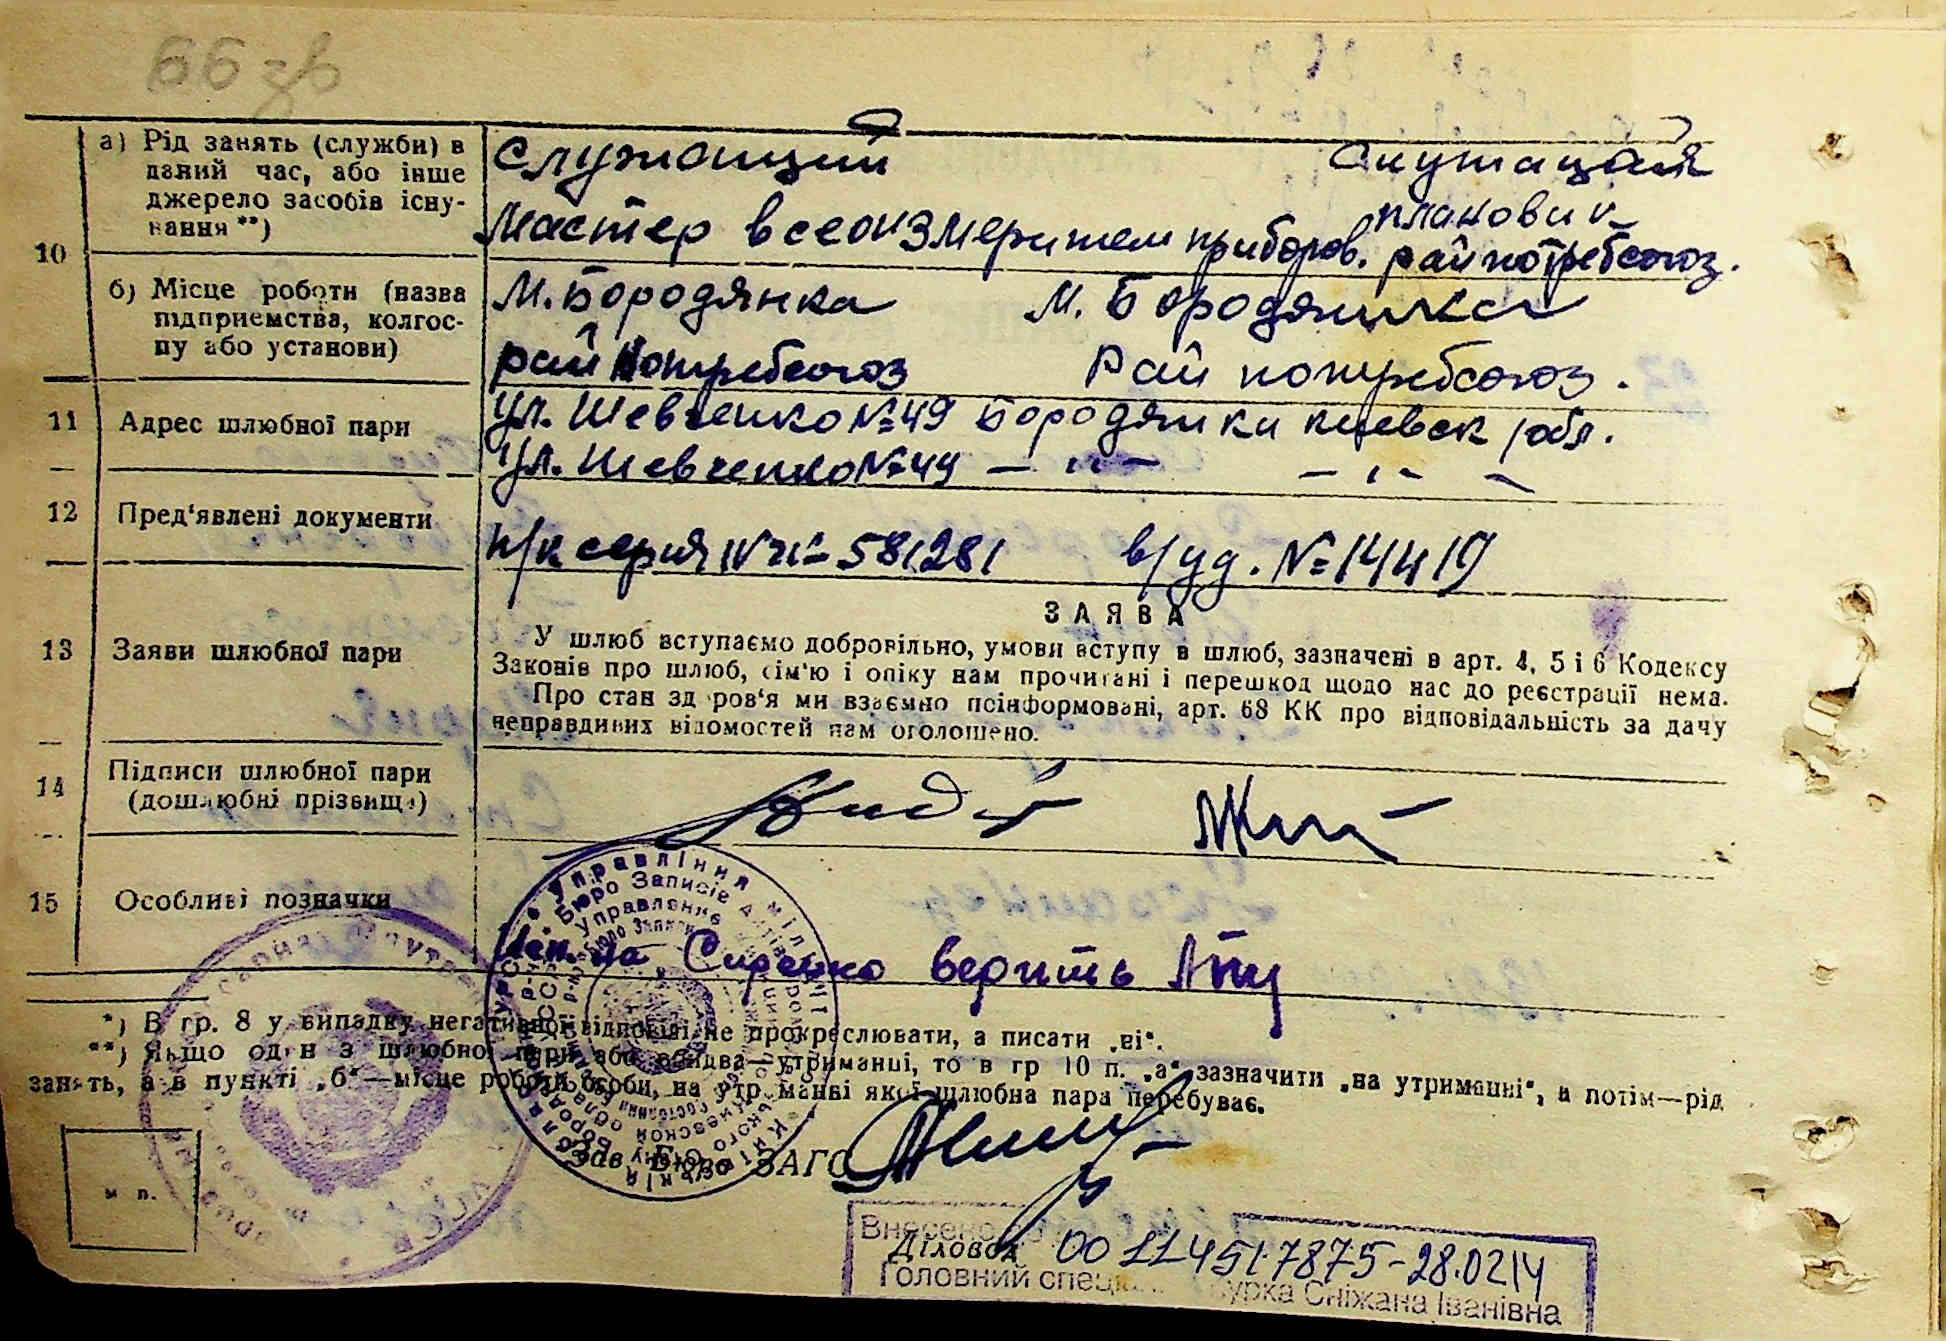 66 зв
10
а) Рід занять (служби) в
даний час, або інше
джерело засобів існу-
вання **)
Служащий Служащая
Мастер всеоизмерителн приборов. плановик
райпотребсоюз.
б) Місце роботи (назва
підприємства, колгос-
пу або установи)
М. Бородянка М. Бородянка
рай Потребсоюз Рай потребсоюз.
11 Адрес шлюбної пари
ул. Шевченко № 49 Бородянки киевск обл.
Ул. Шевченко № 49 — " — — " —
12 Пред'явлені документи
п/к серия № 581281 в/уд. № 14419
13 Заяви шлюбної пари
ЗАЯВА
У шлюб вступаємо добровільно, умови вступу в шлюб, зазначені в арт. 4, 5 і 6 Кодексу
Законів про шлюб, сім'ю і опіку нам прочитані і перешкод щодо нас до реєстрації нема.
Про стан здоров'я ми взаємно поінформовані, арт. 68 КК про відповідальність за дачу
неправдивих відомостей нам оголошено.
14 Підписи шлюбної пари
(дошлюбні прізвища)
15 Особливі позначки
на Сиренко верить
*) В гр. 8 у випадку негативної відповіді не прокреслювати, а писати „ні“.
**) Якщо один з шлюбної пари або обидва—утриманці, то в гр 10 п. „а“ зазначити „на утриманні“, а потім—рід
занять, а в пункті „б“—місце роботи особи, на утриманні якої шлюбна пара перебуває.
Зав. Бюро ЗАГС
м п.
Управління міліції
Бюро Записів Актів
Управление
Бюро Записи
Внесено
Діловод 00114517875-28.02.14
Головний спец Сніжана Іванівна